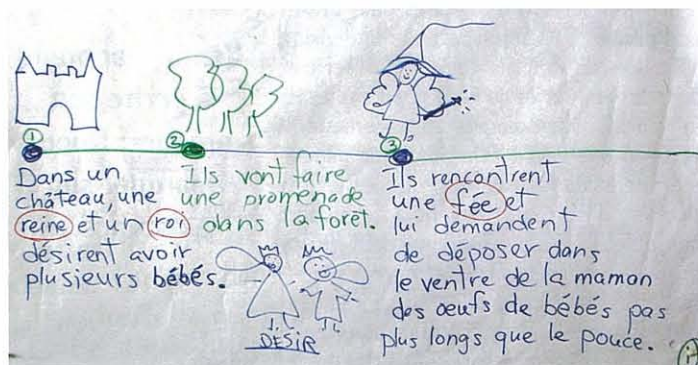 1
Dans un
château, une
reine et un roi
désirent avoir
plusieurs bébés.
2
Ils vont faire
une promenade
dans la forêt.
DESIR
3
Ils rencontrent
une fée et
lui demandent
de déposer dans
le ventre de la maman
des oeufs de bébés pas
plus longs que le pouce.